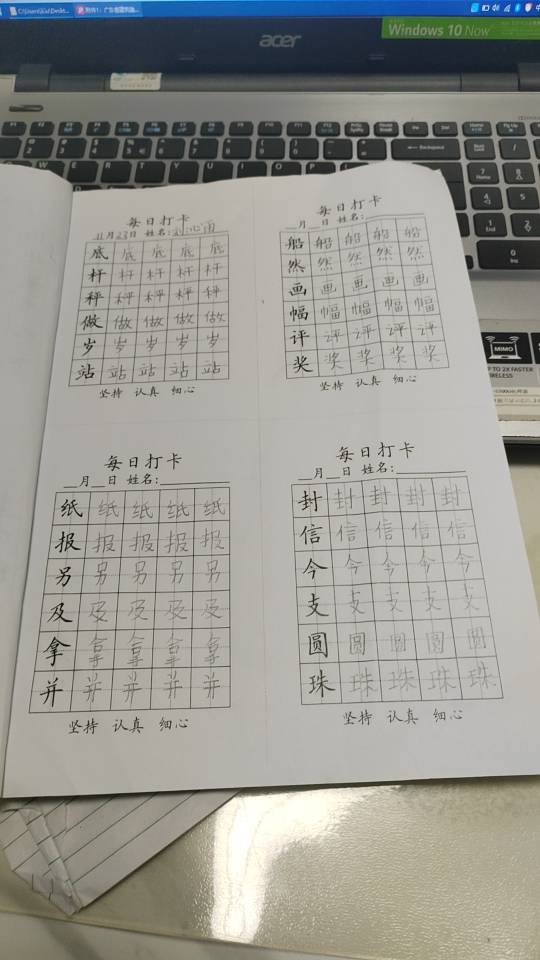 acer
Windows 10 Now
每日打卡
11月23日 姓名:刘沁雨
底 底 底 底 底
杆 杆 杆 杆 杆
秤 秤 秤 秤 秤
做 做 做 做 做
岁 岁 岁 岁 岁
站 站 站 站 站
坚持 认真 细心
每日打卡
__月__日 姓名:
船 船 船 船 船
然 然 然 然 然
画 画 画 画 画
幅 幅 幅 幅 幅
评 评 评 评 评
奖 奖 奖 奖 奖
坚持 认真 细心
每日打卡
__月__日 姓名:
纸 纸 纸 纸 纸
报 报 报 报 报
另 另 另 另 另
及 及 及 及 及
拿 拿 拿 拿 拿
并 并 并 并 并
坚持 认真 细心
每日打卡
__月__日 姓名:
封 封 封 封 封
信 信 信 信 信
今 今 今 今 今
支 支 支 支 支
圆 圆 圆 圆 圆
珠 珠 珠 珠 珠
坚持 认真 细心
MIMO
UP TO 2X FASTER
WIRELESS